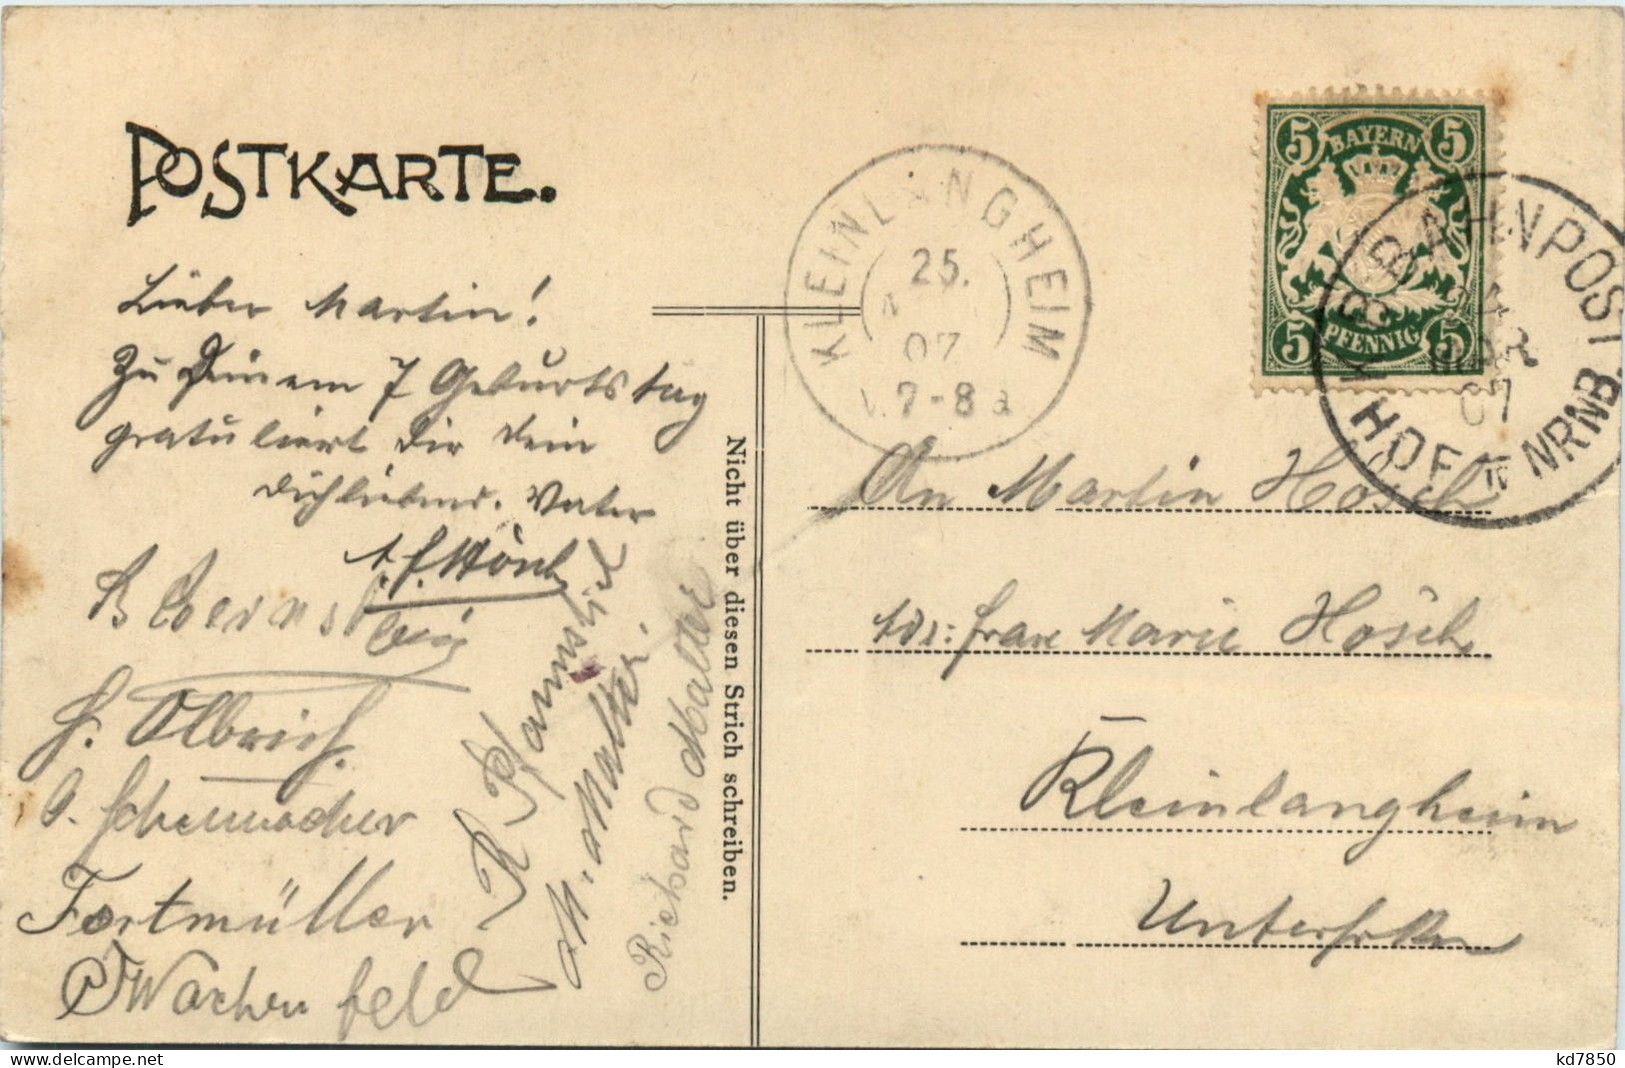 POSTKARTE.
Lieber Martin!
Zu Deinem 7 Geburtstag
gratuliert Dir Dein
Dichliebend. Vater
H. Olbrich.
Schumacher
Fortmüller
Wachenfeld
M. Malter
Richard Malter
Nicht über diesen Strich schreiben.
KLEINLANGHEIM
25.
07
V. 7-8
5 BAYERN 5
5 PFENNIG 5
K.B.BAHNPOST
24
MÄR
07
HOF NRNB.
An Martin Hösch
Adr: Frau Marie Hösch
Kleinlangheim
Unterfrken
www.delcampe.net
kd7850